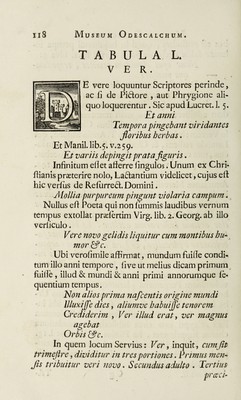 118 MUSEUM ODESCALCHUM.
TABULA L.
VER.
DE vere loquuntur Scriptores perinde,
ac si de Pictore, aut Phrygione ali-
quo loquerentur. Sic apud Lucret. l. 5.
Et anni
Tempora pingebant viridantes
floribus herbas.
Et Manil. lib. 5. v. 259.
Et variis depingit prata figuris.
Infinitum esset afferre singulos. Unum ex Chri-
stianis præterire nolo, Lactantium videlicet, cujus est
hic versus de Resurrect. Domini.
Mollia purpureum pingunt violaria campum.
Nullus est Poeta qui non summis laudibus vernum
tempus extollat præsertim Virg. lib. 2. Georg. ab illo
versiculo.
Vere novo gelidis liquitur cum montibus hu-
mor &c.
Ubi verosimile affirmat, mundum fuisse condi-
tum illo anni tempore, sive ut melius dicam primum
fuisse, illud & mundi & anni primi annorumque se-
quentium tempus.
Non alios prima nascentis origine mundi
Illuxisse dies, aliumve habuisse tenorem
Crediderim, Ver illud erat, ver magnus
agebat
Orbis &c.
In quem locum Servius: Ver, inquit, cum sit
trimestre, dividitur in tres portiones. Primus men-
sis tribuitur veri novo. Secundus adulto. Tertius
præci-